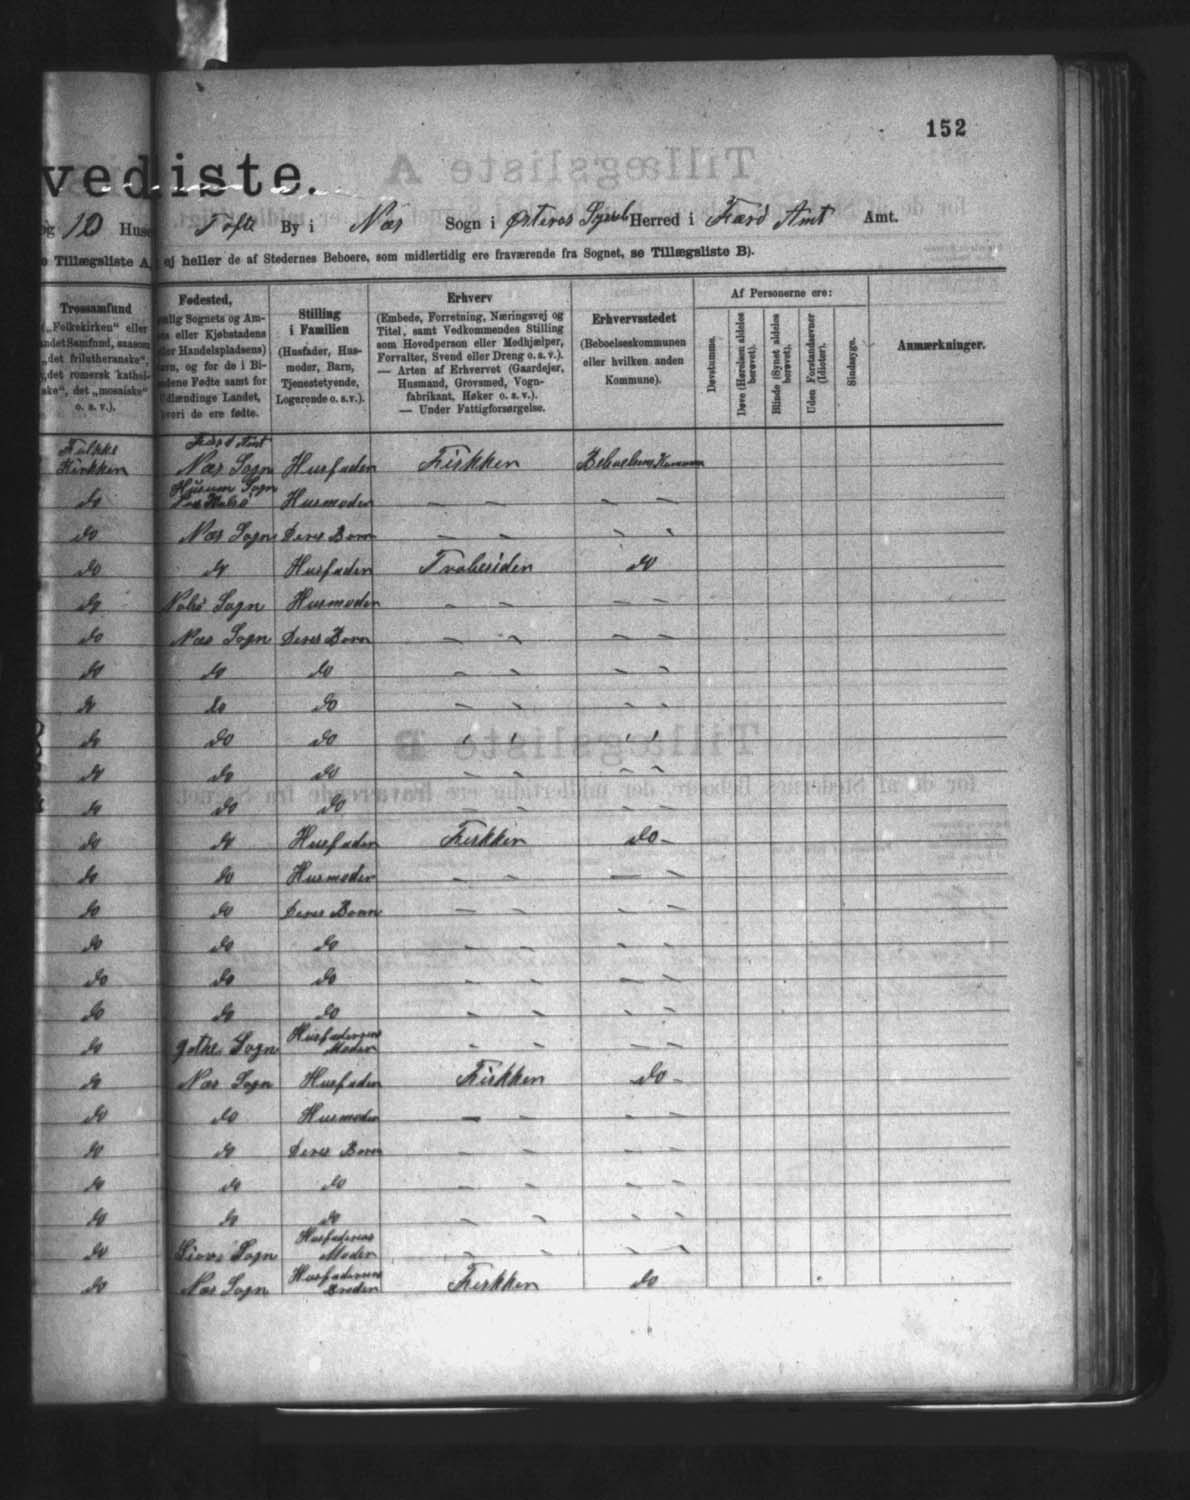 152
vediste.
og 10 Huse Tofte By i Næs Sogn i Østerøs Syssel Herred i Færø Amt Amt.
Tillægsliste A, ej heller de af Stedernes Beboere, som midlertidig ere fraværende fra Sognet, se Tillægsliste B).
Trossamfund
(„Folkekirken“ eller
andet Samfund, saasom
„det frilutheranske“,
„det romersk kathol-
ske“, det „mosaiske“
o. s. v.).
Fødested,
nemlig Sognets og Am-
tets eller Kjøbstadens
eller Handelspladsens)
Navn, og for de i Bi-
landene Fødte samt for
Udlændinge Landet,
hvori de ere fødte.
Stilling
i Familien
(Husfader, Hus-
moder, Barn,
Tjenestetyende,
Logerende o. s. v.).
Erhverv
(Embede, Forretning, Næringsvej og
Titel, samt Vedkommendes Stilling
som Hovedperson eller Medhjælper,
Forvalter, Svend eller Dreng o. s. v.).
— Arten af Erhvervet (Gaardejer,
Husmand, Grovsmed, Vogn-
fabrikant, Høker o. s. v.).
— Under Fattigforsørgelse.
Erhvervsstedet
(Beboelseskommunen
eller hvilken anden
Kommune).
Af Personerne ere:
Døvstumme.
Døve (Hørelsen aldeles
berøvet).
Blinde (Synet aldeles
berøvet).
Uden Forstandsevner
(Idioter).
Sindssyge.
Anmærkninger.
Færø Amt
Folkke
Kirkken Næs Sogn Husfader Fiskker
Husum Sogn
do Husmoder — —
do Næs Sogn Deres Born — —
do do Husfader do
do Nolsø Sogn Husmoder — — — —
do Næs Sogn Deres Born — — — —
do do do — — — —
do do do — — — —
do do do — — — —
do do do — — — —
do do do — — — —
do do Husfader Fiskker do —
do do Husmoder — — — —
do do Deres Born — — — —
do do do — — — —
do do do — — — —
do do do — — — —
do Gøthe Sogn Husfaderens Moder — — — —
do Næs Sogn Husfader Fiskker do —
do do Husmoder — — — —
do do Deres Born — — — —
do do do — — — —
do do do — — — —
do Sogn Husfaderens Moder — — — —
do Næs Sogn Husfaderens Broder Fiskker do